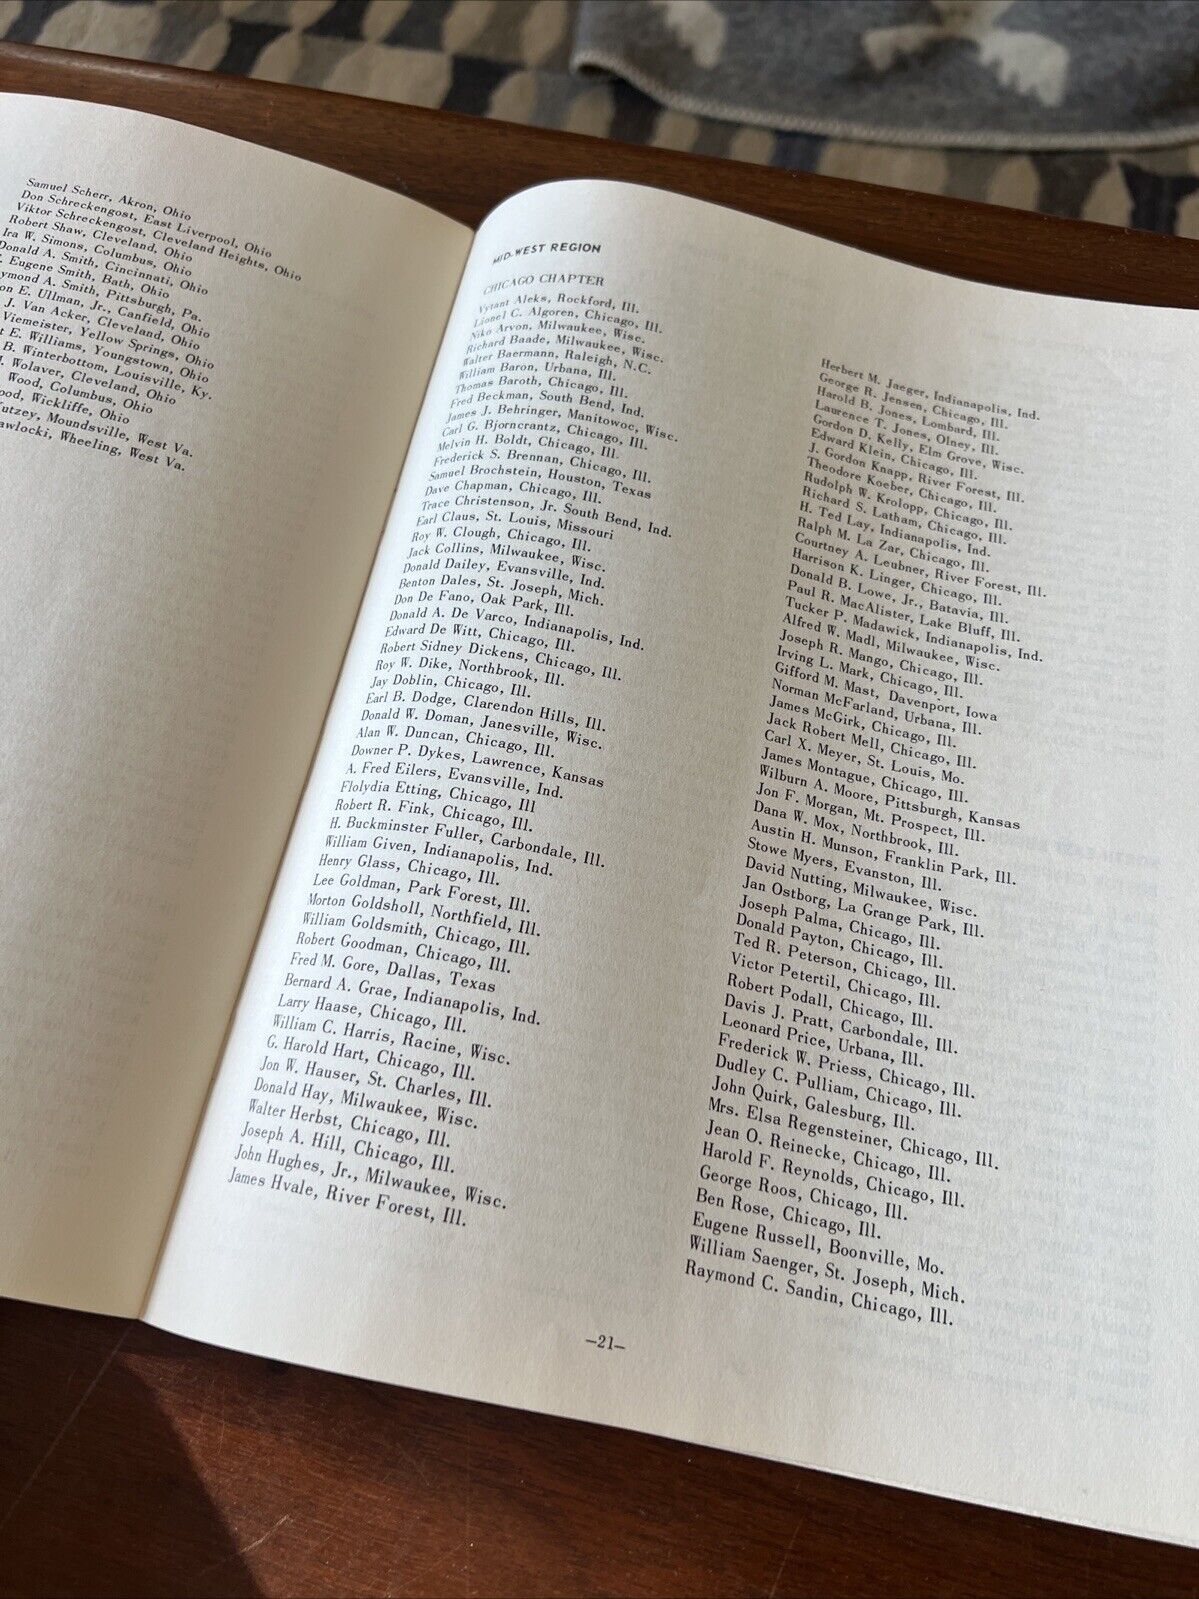 Samuel Scherr, Akron, Ohio
Don Schreckengost, East Liverpool, Ohio
Viktor Schreckengost, Cleveland Heights, Ohio
Robert Shaw, Cleveland, Ohio
Ira W. Simons, Columbus, Ohio
Donald A. Smith, Cincinnati, Ohio
Eugene Smith, Bath, Ohio
ymond A. Smith, Pittsburgh, Pa.
on E. Ullman, Jr., Canfield, Ohio
J. Van Acker, Cleveland, Ohio
Viemeister, Yellow Springs, Ohio
t E. Williams, Youngstown, Ohio
B. Winterbottom, Louisville, Ky.
Wolaver, Cleveland, Ohio
Wood, Columbus, Ohio
ood, Wickliffe, Ohio
utzey, Moundsville, West Va.
awlocki, Wheeling, West Va.
MID-WEST REGION
CHICAGO CHAPTER
Vytant Aleks, Rockford, Ill.
Lionel C. Algoren, Chicago, Ill.
Niko Arvon, Milwaukee, Wisc.
Richard Baade, Milwaukee, Wisc.
Walter Baermann, Raleigh, N.C.
William Baron, Urbana, Ill.
Thomas Baroth, Chicago, Ill.
Fred Beckman, South Bend, Ind.
James J. Behringer, Manitowoc, Wisc.
Carl G. Bjorncrantz, Chicago, Ill.
Melvin H. Boldt, Chicago, Ill.
Frederick S. Brennan, Chicago, Ill.
Samuel Brochstein, Houston, Texas
Dave Chapman, Chicago, Ill.
Trace Christenson, Jr. South Bend, Ind.
Earl Claus, St. Louis, Missouri
Roy W. Clough, Chicago, Ill.
Jack Collins, Milwaukee, Wisc.
Donald Dailey, Evansville, Ind.
Benton Dales, St. Joseph, Mich.
Don De Fano, Oak Park, Ill.
Donald A. De Varco, Indianapolis, Ind.
Edward De Witt, Chicago, Ill.
Robert Sidney Dickens, Chicago, Ill.
Roy W. Dike, Northbrook, Ill.
Jay Doblin, Chicago, Ill.
Earl B. Dodge, Clarendon Hills, Ill.
Donald W. Doman, Janesville, Wisc.
Alan W. Duncan, Chicago, Ill.
Downer P. Dykes, Lawrence, Kansas
A. Fred Eilers, Evansville, Ind.
Flolydia Etting, Chicago, Ill
Robert R. Fink, Chicago, Ill.
H. Buckminster Fuller, Carbondale, Ill.
William Given, Indianapolis, Ind.
Henry Glass, Chicago, Ill.
Lee Goldman, Park Forest, Ill.
Morton Goldsholl, Northfield, Ill.
William Goldsmith, Chicago, Ill.
Robert Goodman, Chicago, Ill.
Fred M. Gore, Dallas, Texas
Bernard A. Grae, Indianapolis, Ind.
Larry Haase, Chicago, Ill.
William C. Harris, Racine, Wisc.
G. Harold Hart, Chicago, Ill.
Jon W. Hauser, St. Charles, Ill.
Donald Hay, Milwaukee, Wisc.
Walter Herbst, Chicago, Ill.
Joseph A. Hill, Chicago, Ill.
John Hughes, Jr., Milwaukee, Wisc.
James Hvale, River Forest, Ill.
Herbert M. Jaeger, Indianapolis, Ind.
George R. Jensen, Chicago, Ill.
Harold B. Jones, Lombard, Ill.
Laurence T. Jones, Olney, Ill.
Gordon D. Kelly, Elm Grove, Wisc.
Edward Klein, Chicago, Ill.
J. Gordon Knapp, River Forest, Ill.
Theodore Koeber, Chicago, Ill.
Rudolph W. Krolopp, Chicago, Ill.
Richard S. Latham, Chicago, Ill.
H. Ted Lay, Indianapolis, Ind.
Ralph M. La Zar, Chicago, Ill.
Courtney A. Leubner, River Forest, Ill.
Harrison K. Linger, Chicago, Ill.
Donald B. Lowe, Jr., Batavia, Ill.
Paul R. MacAlister, Lake Bluff, Ill.
Tucker P. Madawick, Indianapolis, Ind.
Alfred W. Madl, Milwaukee, Wisc.
Joseph R. Mango, Chicago, Ill.
Irving L. Mark, Chicago, Ill.
Gifford M. Mast, Davenport, Iowa
Norman McFarland, Urbana, Ill.
James McGirk, Chicago, Ill.
Jack Robert Mell, Chicago, Ill.
Carl X. Meyer, St. Louis, Mo.
James Montague, Chicago, Ill.
Wilburn A. Moore, Pittsburgh, Kansas
Jon F. Morgan, Mt. Prospect, Ill.
Dana W. Mox, Northbrook, Ill.
Austin H. Munson, Franklin Park, Ill.
Stowe Myers, Evanston, Ill.
David Nutting, Milwaukee, Wisc.
Jan Ostborg, La Grange Park, Ill.
Joseph Palma, Chicago, Ill.
Donald Payton, Chicago, Ill.
Ted R. Peterson, Chicago, Ill.
Victor Petertil, Chicago, Ill.
Robert Podall, Chicago, Ill.
Davis J. Pratt, Carbondale, Ill.
Leonard Price, Urbana, Ill.
Frederick W. Priess, Chicago, Ill.
Dudley C. Pulliam, Chicago, Ill.
John Quirk, Galesburg, Ill.
Mrs. Elsa Regensteiner, Chicago, Ill.
Jean O. Reinecke, Chicago, Ill.
Harold F. Reynolds, Chicago, Ill.
George Roos, Chicago, Ill.
Ben Rose, Chicago, Ill.
Eugene Russell, Boonville, Mo.
William Saenger, St. Joseph, Mich.
Raymond C. Sandin, Chicago, Ill.
—21—